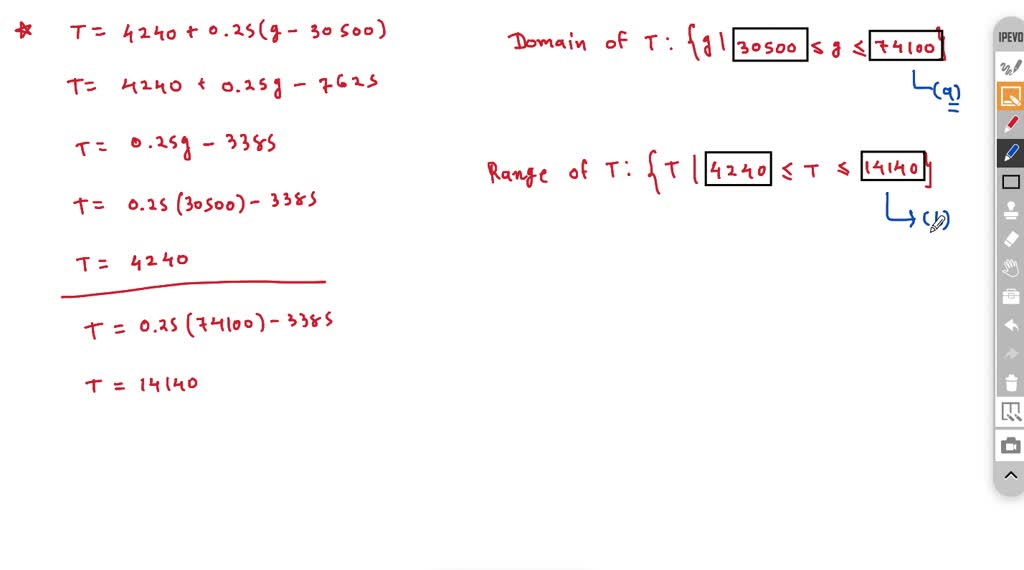 * T = 4240 + 0.25(g - 30500)
T = 4240 + 0.25g - 7625
T = 0.25g - 3385
T = 0.25(30500) - 3385
T = 4240
T = 0.25(74100) - 3385
T = 14140
Domain of T : {g | 30500 ≤ g ≤ 74100}
(a)
Range of T : {T | 4240 ≤ T ≤ 14140}
IPEVO